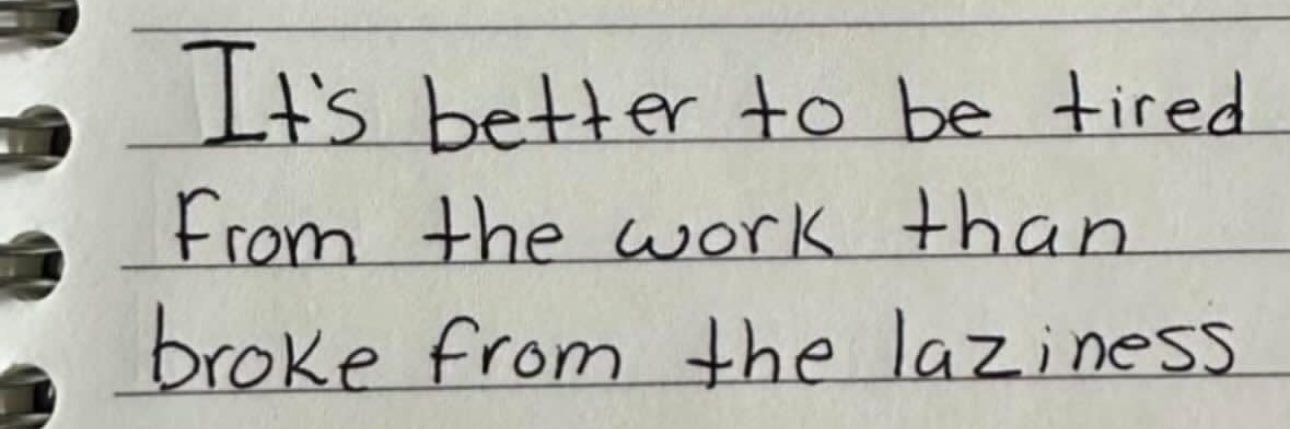 It's better to be tired
from the work than
broke from the laziness